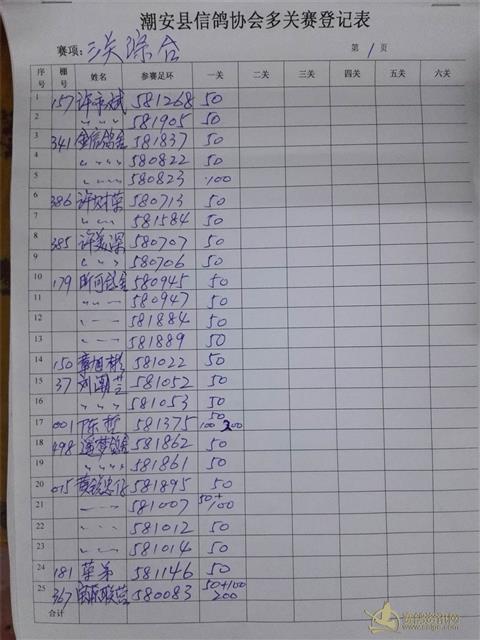 潮安县信鸽协会多关赛登记表
赛项: 三关综合 第 1 页
序号 棚号 姓名 参赛足环 一关 二关 三关 四关 五关 六关
1 157 许 斌 581268 50
2 〃 〃 〃 581905 50
3 341 581837 50
4 〃 〃 〃 580822 50
5 〃 — — 580823 100
6 386 许财荣 580713 50
7 〃 〃 — 581584 50
8 385 许 深 580707 50
9 〃 〃 580706 50
10 179 580945 50
11 〃 〃 — 580947 50
12 〃 — — 581884 50
13 〃 — — 581889 50
14 150 章旭彬 581022 50
15 37 刘潮芝 581052 50
16 〃 〃 〃 581053 50
17 001 陈哲 581375 50 100 200
18 498 581862 50
19 〃 〃 〃 〃 581861 50
20 015 581895 50
21 — — 581007 50+100
22 581012 50
23 581014 50
24 181 蔡弟 581146 50
25 367 联营 580083 50+100 200
合计